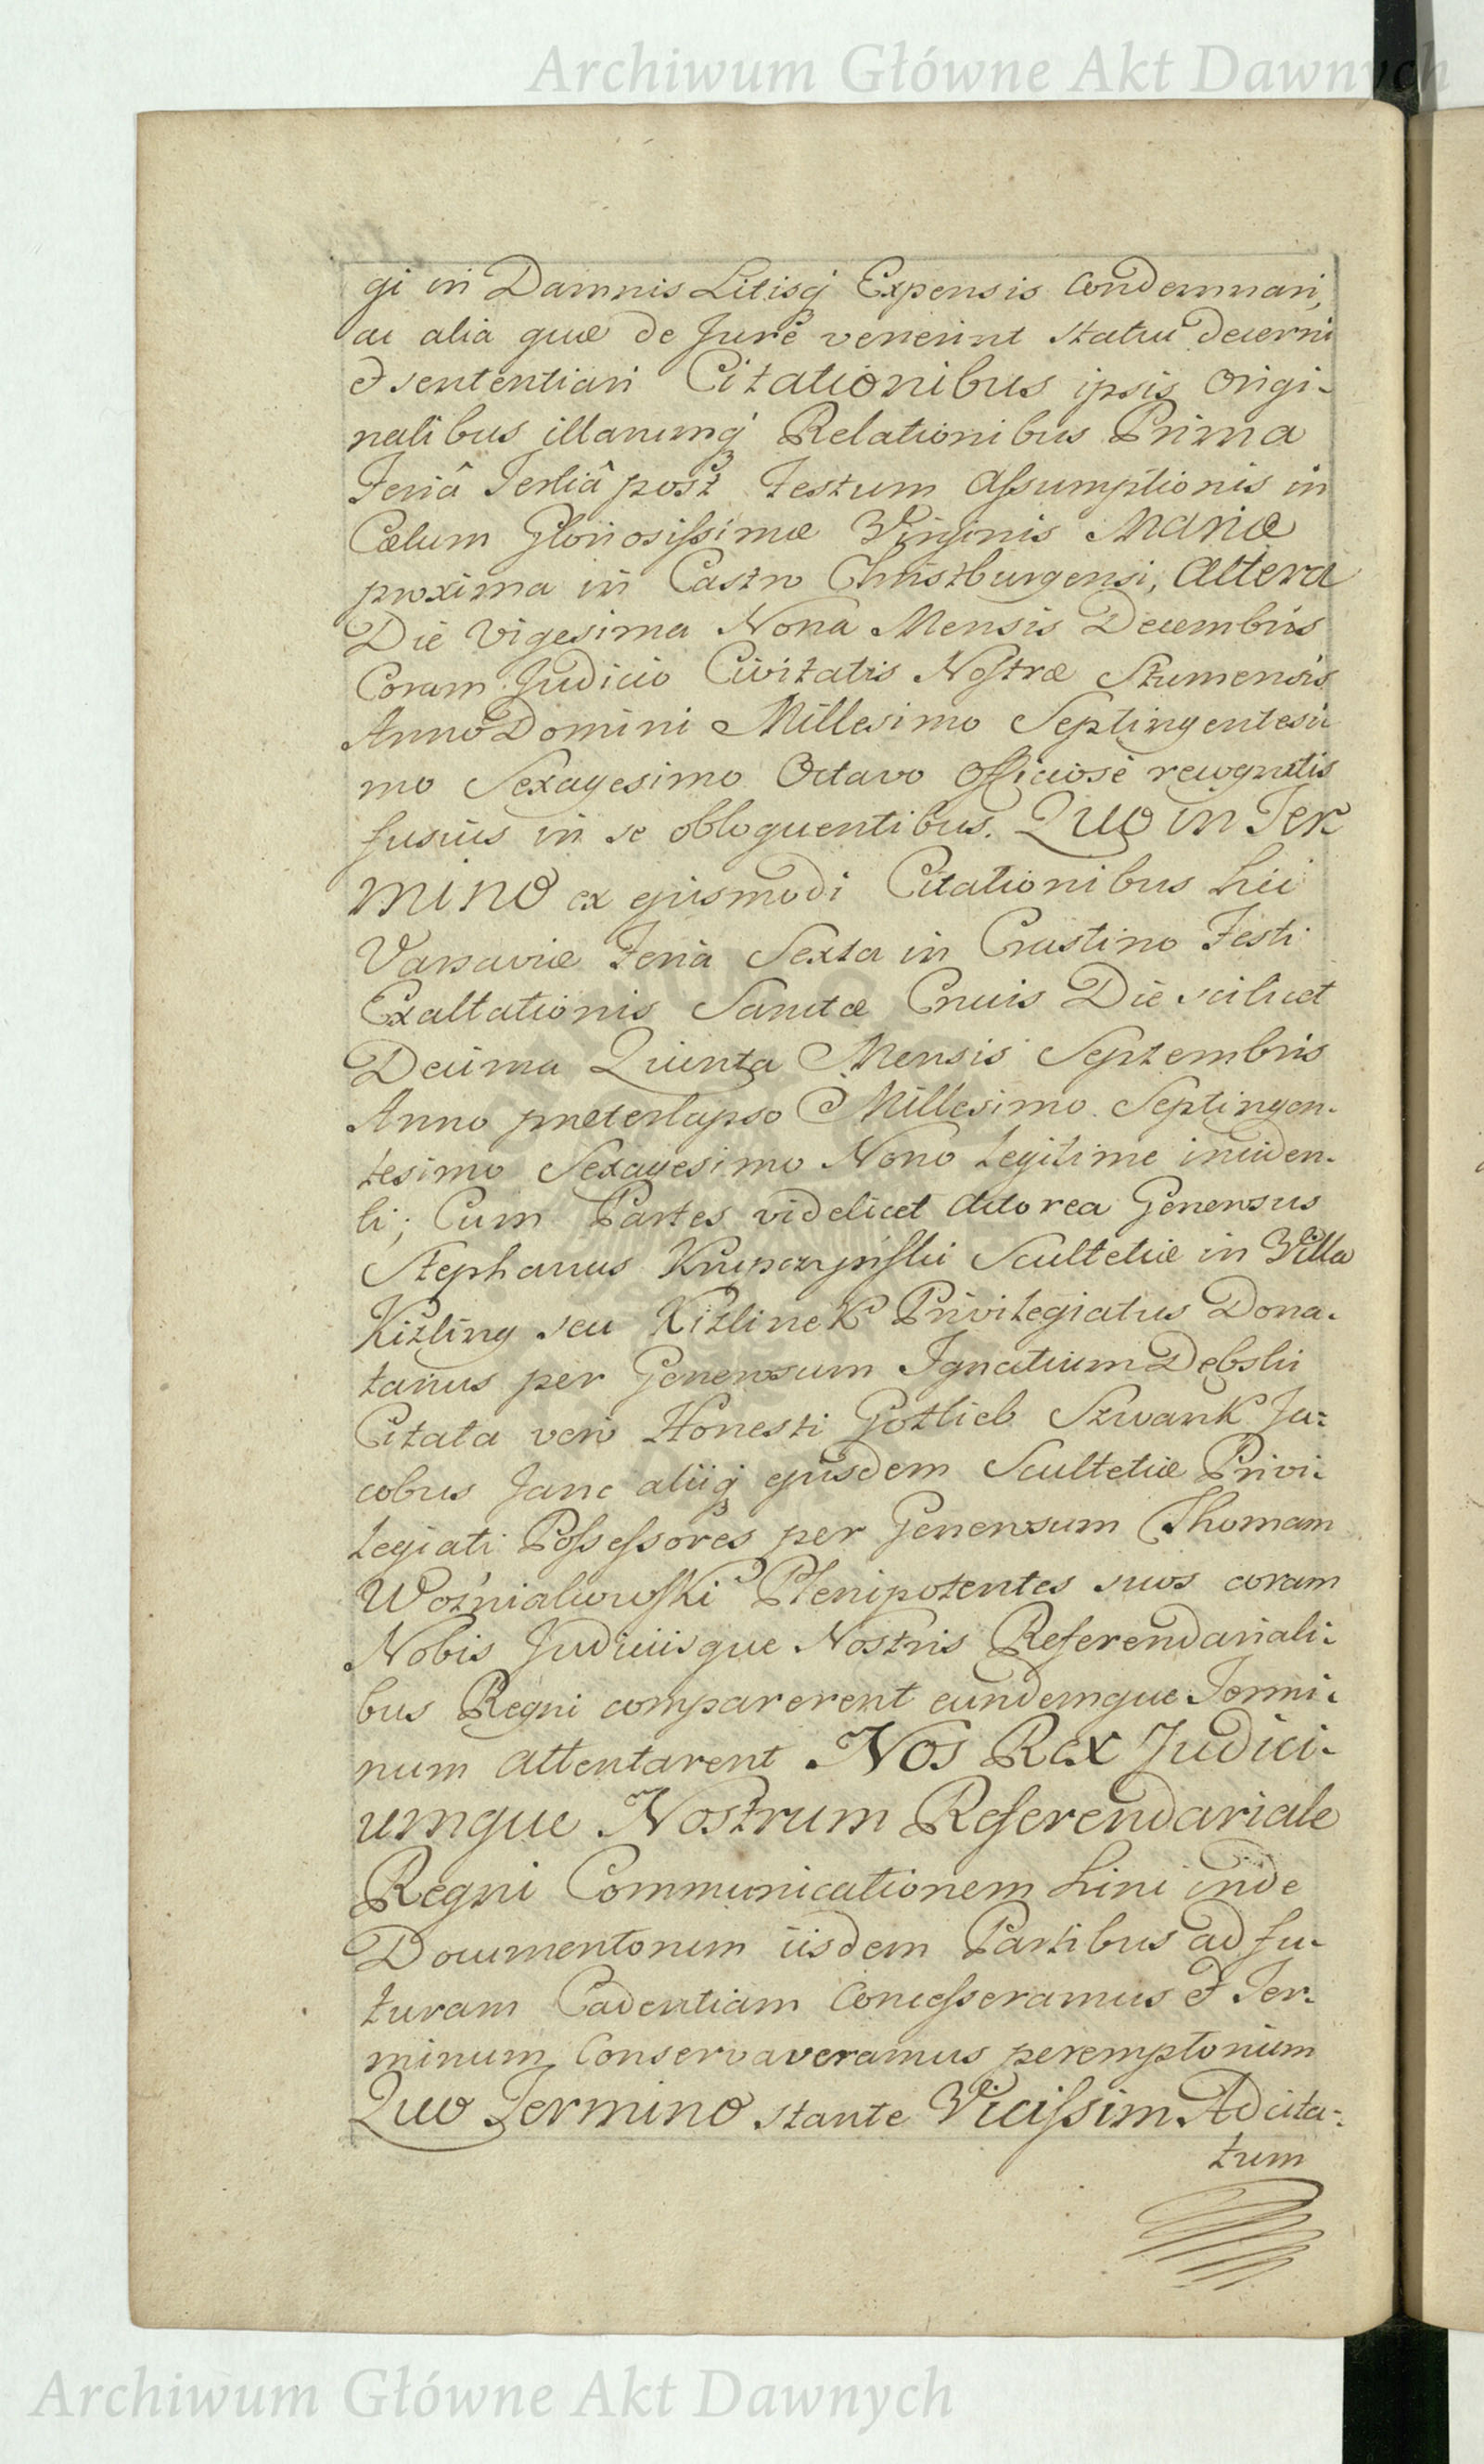 Archiwum Główne Akt Dawnych
gi in Damnis Litisq́ Expensis Condemnari,
ac alia quæ de Jure venerint statui decerni
et sententiari Citationibus ipsis Origi-
nalibus illarumq́ Relationibus Prima
Feriâ Tertiâ post Festum Assumptionis in
Cælum Gloriosissimæ Virginis Mariæ
proxima in Castro Christburgensi, Altera
Die Vigesima Nona Mensis Decembris
Coram Judicio Civitatis Nostræ Stumensis
Anno Domini Millesimo Septingentesi
mo Sexagesimo Octavo Officiose recognitis
fusius in se obloquentibus. Quo in Ter
mino ex ejusmodi Citationibus hic
Varsaviæ Feria Sexta in Crastino Festi
Exaltationis Sanctæ Crucis Die scilicet
Decima Quinta Mensis Septembris
Anno præterlapso Millesimo Septingen-
tesimo Sexagesimo Nono legitime inciden-
ti; Cum Partes videlicet Actorea Generosus
Stephanus Krupczyński Scultetiæ in Villa
Kizling seu Kizlinek Privilegiatus Dona-
tarius per Generosum Ignatium Dębski
Citata vero Honesti Gotlieb Szwank Ja-
cobus Janc aliiq́ ejusdem Scultetiæ Privi-
legiati Possessores per Generosum Thomam
Woźniakowski Plenipotentes suos coram
Nobis Judiciisque Nostris Referendariali-
bus Regni comparerent eundemque Termi-
num attentarent Nos Rex Judici-
umque Nostrum Referendariale
Regni Communicationem hinc inde
Documentorum iisdem Partibus ad fu-
turam Cadentiam Concesseramus et Ter-
minum Conservaveramus peremptorium
Quo Termino stante Vicissim Adcita-
tum
Archiwum Główne Akt Dawnych